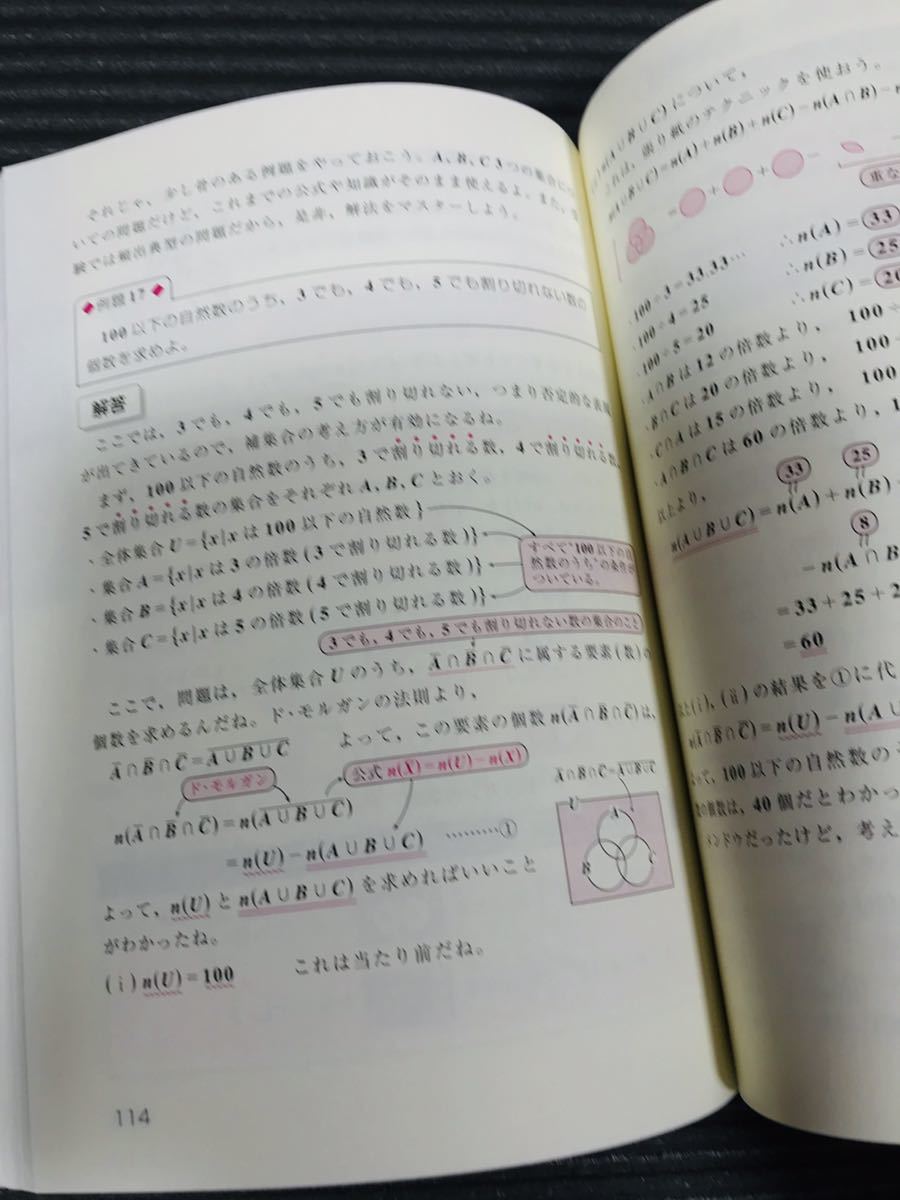 それじゃ、少し骨のある例題をやっておこう。A, B, C 3つの集合につ
いての問題だけど、これまでの公式や知識がそのまま使えるよ。また、
験では頻出典型の問題だから、是非、解法をマスターしよう。
◆例題17◆
100以下の自然数のうち、3でも、4でも、5でも割り切れない数の
個数を求めよ。
解答
ここでは、3でも、4でも、5でも割り切れない、つまり否定的な表現
が出てきているので、補集合の考え方が有効になるね。
まず、100以下の自然数のうち、3で割り切れる数、4で割り切れる数、
5で割り切れる数の集合をそれぞれA, B, Cとおく。
・全体集合U={x|xは100以下の自然数}
・集合A={x|xは3の倍数(3で割り切れる数)}
・集合B={x|xは4の倍数(4で割り切れる数)}
・集合C={x|xは5の倍数(5で割り切れる数)}
すべて“100以下の自
然数のうち”の条件が
ついている。
3でも、4でも、5でも割り切れない数の集合のこと
ここで、問題は、全体集合Uのうち、A̅∩B̅∩C̅に属する要素(数)の
個数を求めるんだね。ド・モルガンの法則より、
A̅∩B̅∩C̅=A̅∪̅B̅∪̅C̅ よって、この要素の個数n(A̅∩B̅∩C̅)は、
ド・モルガン
公式 n(X̅)=n(U)−n(X)
n(A̅∩B̅∩C̅)=n(A̅∪̅B̅∪̅C̅)
=n(U)−n(A∪B∪C) ………①
A̅∩B̅∩C̅=A̅∪̅B̅∪̅C̅
U
A
B
C
よって、n(U)とn(A∪B∪C)を求めればいいこと
がわかったね。
(i)n(U)=100 これは当たり前だね。
114
n(A∪B∪C)について、
これは、張り紙のテクニックを使おう。
n(A∪B∪C)=n(A)+n(B)+n(C)−n(A∩B)−n
= + + −
重な
・100÷3=33.33… ∴n(A)=33
・100÷4=25 ∴n(B)=25
・100÷5=20 ∴n(C)=20
・A∩Bは12の倍数より、 100÷
・B∩Cは20の倍数より、 100÷
・C∩Aは15の倍数より、 100
・A∩B∩Cは60の倍数より、1
以上より、
33
25
n(A∪B∪C)=n(A)+n(B)
8
−n(A∩B
=33+25+2
=60
(i), (ii)の結果を①に代
n(A̅∩B̅∩C̅)=n(U)−n(A∪
よって、100以下の自然数の
の個数は、40個だとわかっ
メンドウだったけど、考え